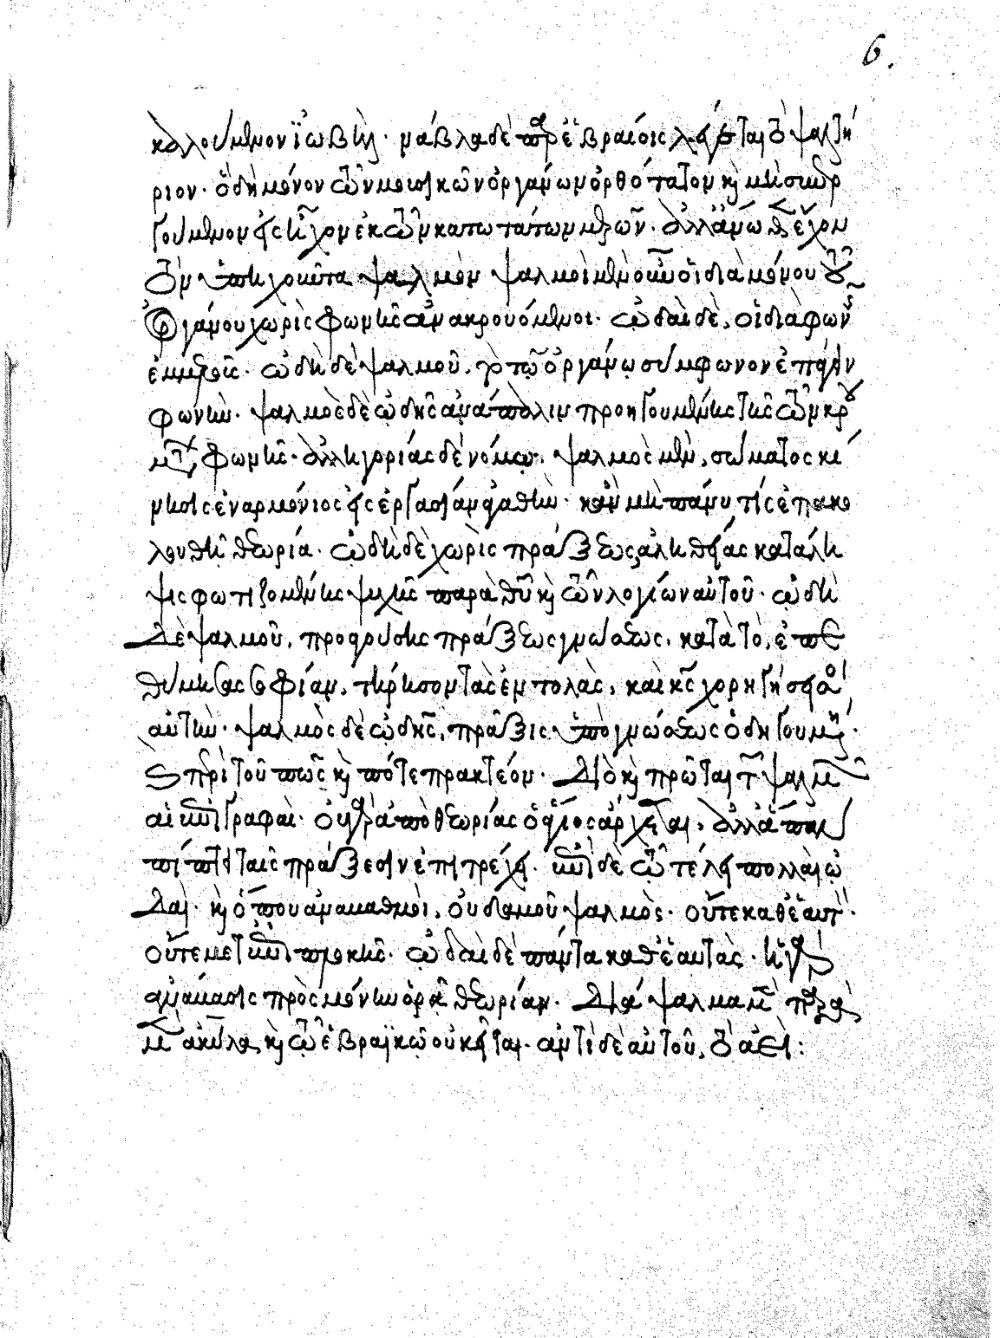 6.
καλούμενον ἰωβήλ· νάβλα δὲ παρ' ἑβραίοις λέγεται τὸ ψαλτή
ριον· ὃ δὴ μόνον τῶν μουσικῶν ὀργάνων ὀρθότατον καὶ μὴ συνερ
γούμενον εἰς ἦχον ἐκ τῶν κατωτάτων μερῶν. ἀλλ' ἄνωθεν ἔχον
τὸν ὑπηχοῦντα ψαλμόν ψαλμοὶ μὲν οὖν οἱ διὰ μόνου τοῦ
ὀργάνου χωρὶς φωνῆς ἀνακρουόμενοι· ᾠδαὶ δὲ, οἱ διὰ φωνῆς
ἐμμελοῦς· ᾠδὴ δὲ ψαλμοῦ, τὸ τῷ ὀργάνῳ σύμφωνον ἐπάγειν
φωνήν· ψαλμὸς δὲ ᾠδῆς ἀνάπαλιν προηγουμένης τῆς τῶν κρου
μάτων φωνῆς· ἀλληγορίας δὲ νόμῳ, ψαλμὸς μὲν, σώματος κί
νησις ἐναρμόνιος εἰς ἐργασίαν ἀγαθήν· κἂν μὴ πάνυ τίς ἐπακο
λουθῇ θεωρία· ᾠδὴ δὲ χωρὶς πράξεως ἀληθείας κατάλη
ψις φωτιζομένης ψυχῆς παρὰ θεοῦ καὶ τῶν λογίων αὐτοῦ· ᾠδὴ
δὲ ψαλμοῦ, προαγούσης πράξεως γνώσεως, κατὰ τὸ, ἐπε
θύμησας σοφίαν, τήρησον τὰς ἐντολὰς, καὶ κύριος χορηγήσει σοι
αὐτήν· ψαλμὸς δὲ ᾠδῆς, πρᾶξις ὑπὸ γνώσεως ὁδηγουμένη·
περὶ τοῦ πῶς καὶ πότε πρακτέον· διὸ καὶ πρῶται τῶν ψαλμῶν
αἱ ἐπιγραφαὶ· οὐ γὰρ ἀπὸ θεωρίας ὁ βίος ἄρχεται, ἀλλὰ
ταῖς πράξεσιν ἐπιτρέχει· ἐπὶ δὲ τῷ τέλει πολλαὶ ᾠ
δαὶ· καὶ ὅπου ἀναβαθμοὶ, οὐδαμοῦ ψαλμὸς· οὔτε καθ' ἑαυτὸν·
οὔτε μετ' ἐπιπλοκῆς· ᾠδαὶ δὲ πάντα καθ' ἑαυτὰς· ἡ γὰρ
ἀνάβασις πρὸς μόνην ὁρᾷ θεωρίαν. διάψαλμα παρὰ
ἀκύλᾳ καὶ τῷ ἑβραϊκῷ οὐ κεῖται· ἀντὶ δὲ αὐτοῦ, τὸ ἀεὶ: